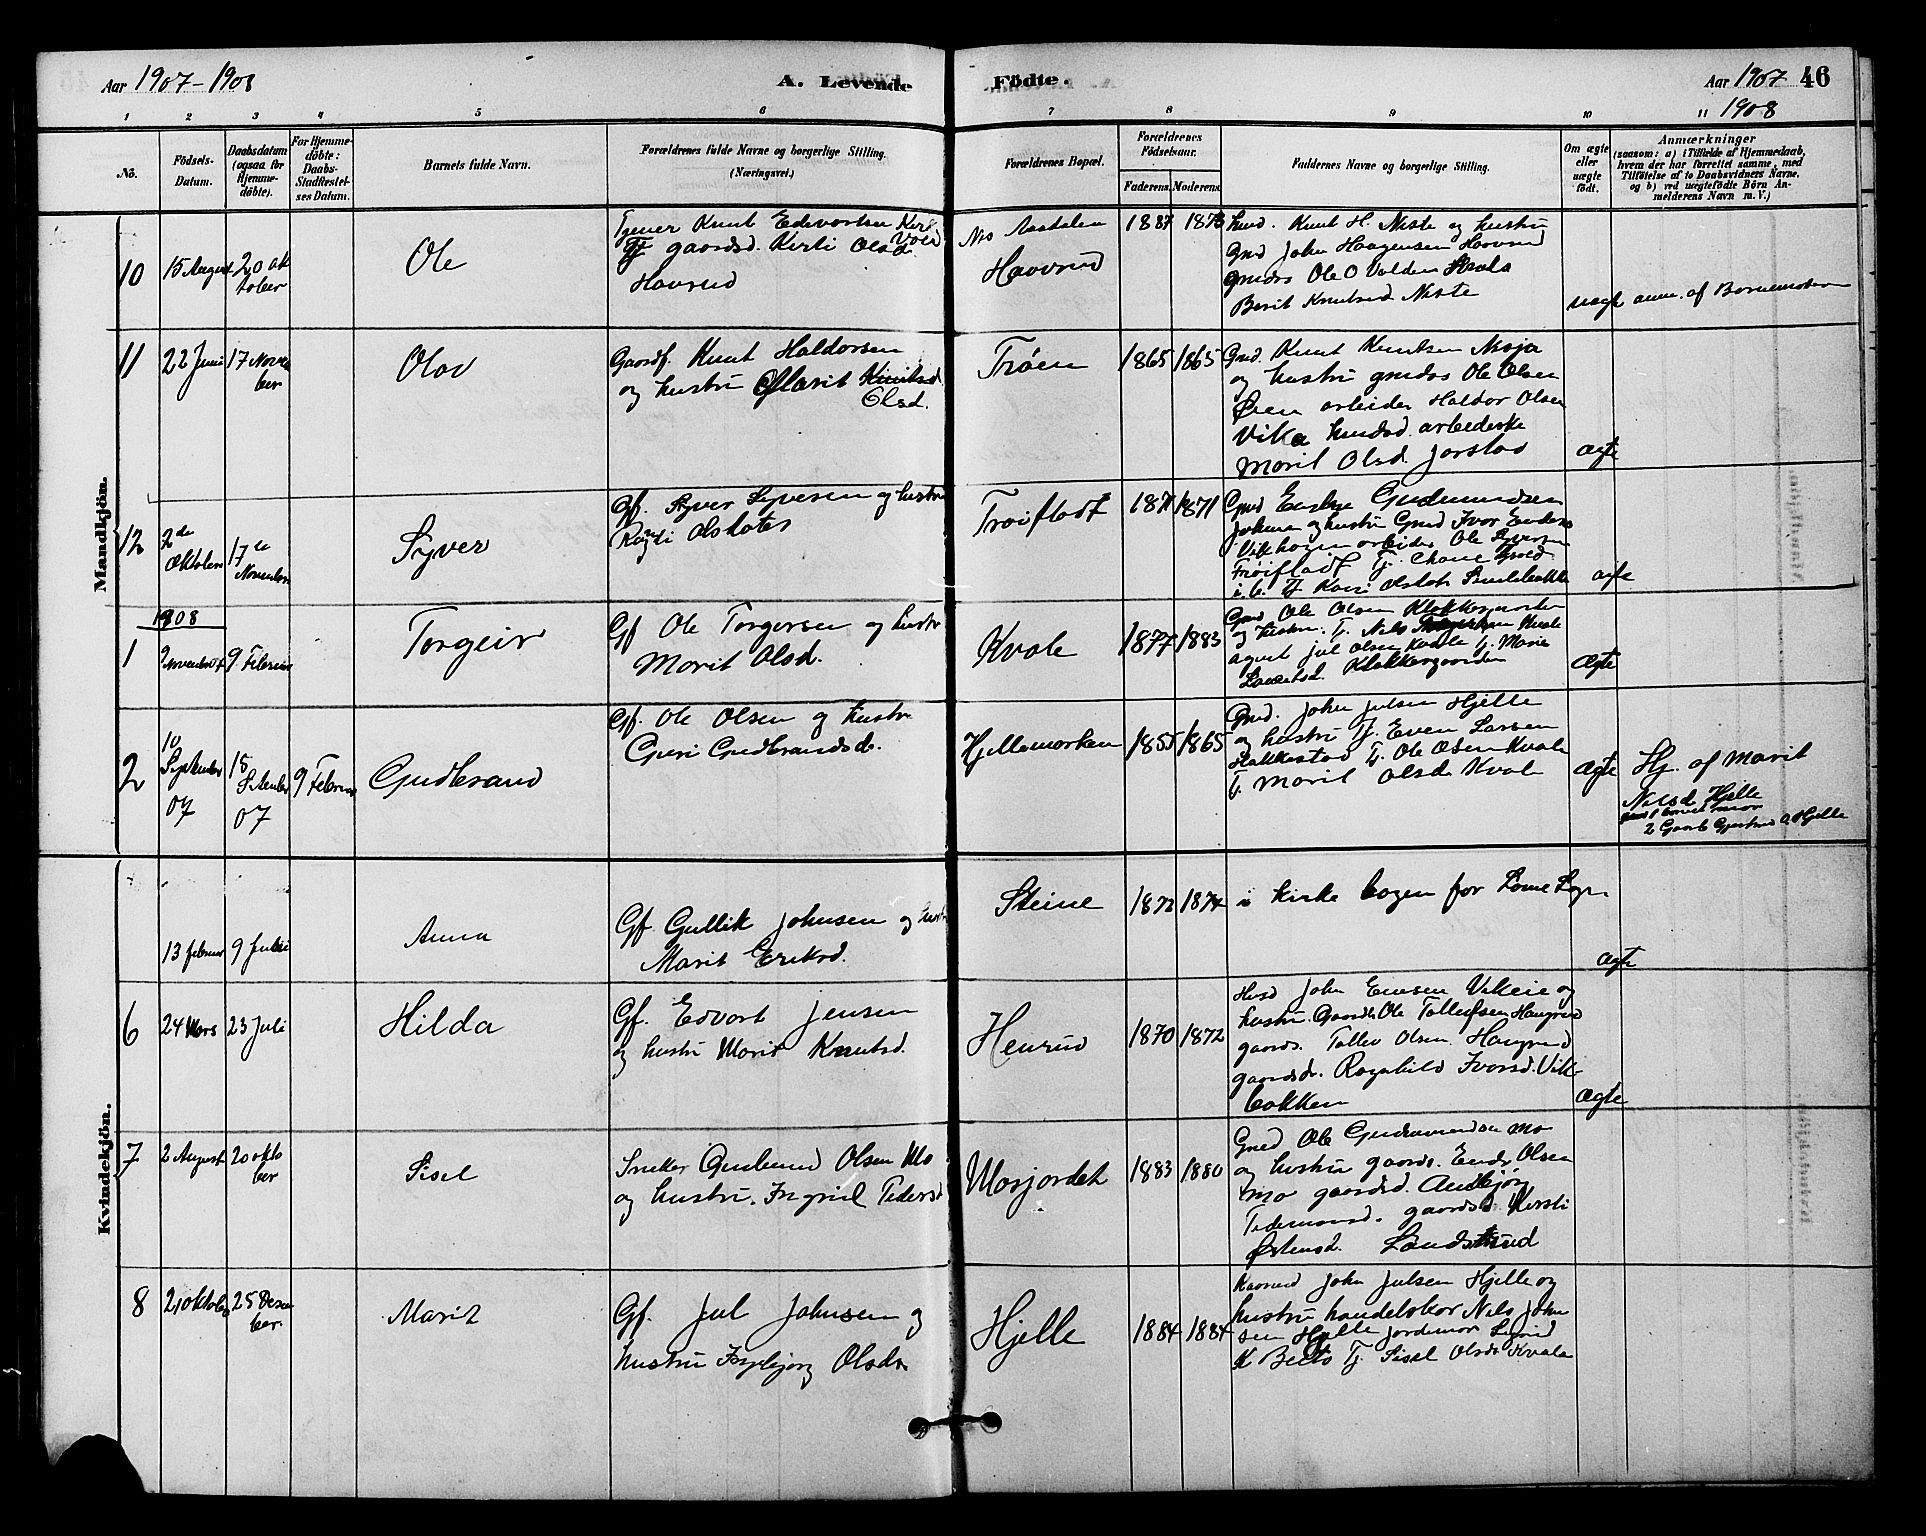 Aar 1907-1908
A. Levende
Födte.
Aar 1907
46
1908
1 2 3 4 5 6 7 8 9 10 11
Nö.
Födsels-
Datum.
Daabsdatum
(ogsaa for
Hjemme-
döbte).
For Hjemme-
döbte:
Daabs-
Stadfæstel-
ses Datum.
Barnets fulde Navn.
Forældrenes fulde Navne og borgerlige Stilling.
(Næringsvei.)
Forældrenes Bopæl.
Forældrenes
Födselsaar.
Faderens. Moderens.
Faddernes Navne og borgerlige Stilling.
Om ægte
eller
uægte
födt.
Anmærkninger
(saasom: a) i Tilfælde af Hjemmedaab,
hvem der har forrettet samme, med
Tilföielse af to Daabsvidners Navne,
og b) ved uægtefödte Börn An-
melderens Navn m. V.)
Mandkjön.
10
15 August
20 ok
tober
Ole
Tjener Knut Edvartsen
Tj gaardsd. Kersti Olsd
Haavrud
Haavrud
1887 1873
Knut H. Neste og hustru
Gmd John Haagensen Haavrud
Ole O Volden
Berit Knutsd Neste
uægte
anm. af Barnemoderen
11
22 Juni
17 Novem
ber
Olav
Gaardf. Knut Haldorsen
og hustru Marit Knutsd
Olsd.
Trøen
1865 1865
Gmd. Knut Knutsen
og hustru gmds Ole Olsen
Øen arbeider Haldor Olsen
Vika arbeiderske
Marit Olsd. Jorstad
Ægte
12
2de
Oktober
17de
November
Syver
Gf. Syver Syversen og hustru
Ragndi Olsdater
Trøistadt
1871 1871
Gmd Endre Gudmundsen
og hustru Gmd Ivar
Vikhagen arbeider Ole Syversen
Trøistadt Tj.
Tj Kari Olsdat
ægte
1908
1
9 November
9 Februar
Torgeir
Gf Ole Torgersen og hustr
Marit Olsd.
Kvale
1877 1883
Gmd Ole Olsen
og hustru. Tj. Nils Kvale
Jul Olsen Kvale Tj. Marie
Klokkergaarden
Ægte
2
10
September
07
15
September
07
9 Februar
Gudbrand
Gf. Ole Olsen og hustr.
Guri Gudbrandsd.
Hjellemorken
1855 1865
Gmd. John Julsen Hjelle
og hustru Tj. Even Larsen
Tj. Ole Olsen Kvale
Tj. Marit Olsd Kvale
Ægte
Hj. af Marit
Nilsd Hjelle
2 Gjertrud O. Hjelle
Kvindekjön.
13 februar
9 Juli
Anna
Gf. Gullik Johnsen og hustr
Marit Eriksd.
Steine
1872 1874
i kirke bogen for Lome Sogn
Ægte
6
24 Mars
23 Juli
Hilda
Gf. Edvart Jensen
og hustru Marit Knutsd.
Henrud
1870 1872
John Ensen Vikeie og
hustru. Gaardb. Ole Tollefsen Haugrud
gaards. Tollev Olsen Haugrud
gaardsd. Ragnhild Ivarsd. Vik-
bakken
Ægte
7
2 August
20 okto
ber
Sisel
Snekker Gudmund Olsen Mo
og hustru. Ingrid Tidemsd
Mosjordet
1883 1880
Gmd Ole Gudmundsen Mo
og hustru gaards. Endr. Olsen
Mo gaardsd. Andbjørg
Tidemansd. gaardsd. Kersti
Østensd. Landsterud
8
2 oktober
25 Desem
ber
Marit
Gf. Jul Johnsen og
hustru Ingebjørg Olsdr.
Hjelle
1884 1884
John Julsen Hjelle og
hustru handelskar Nils John
sen Hjelle jordemor Sigrid
K Beito Tj. Sisel Olsd. Kvale